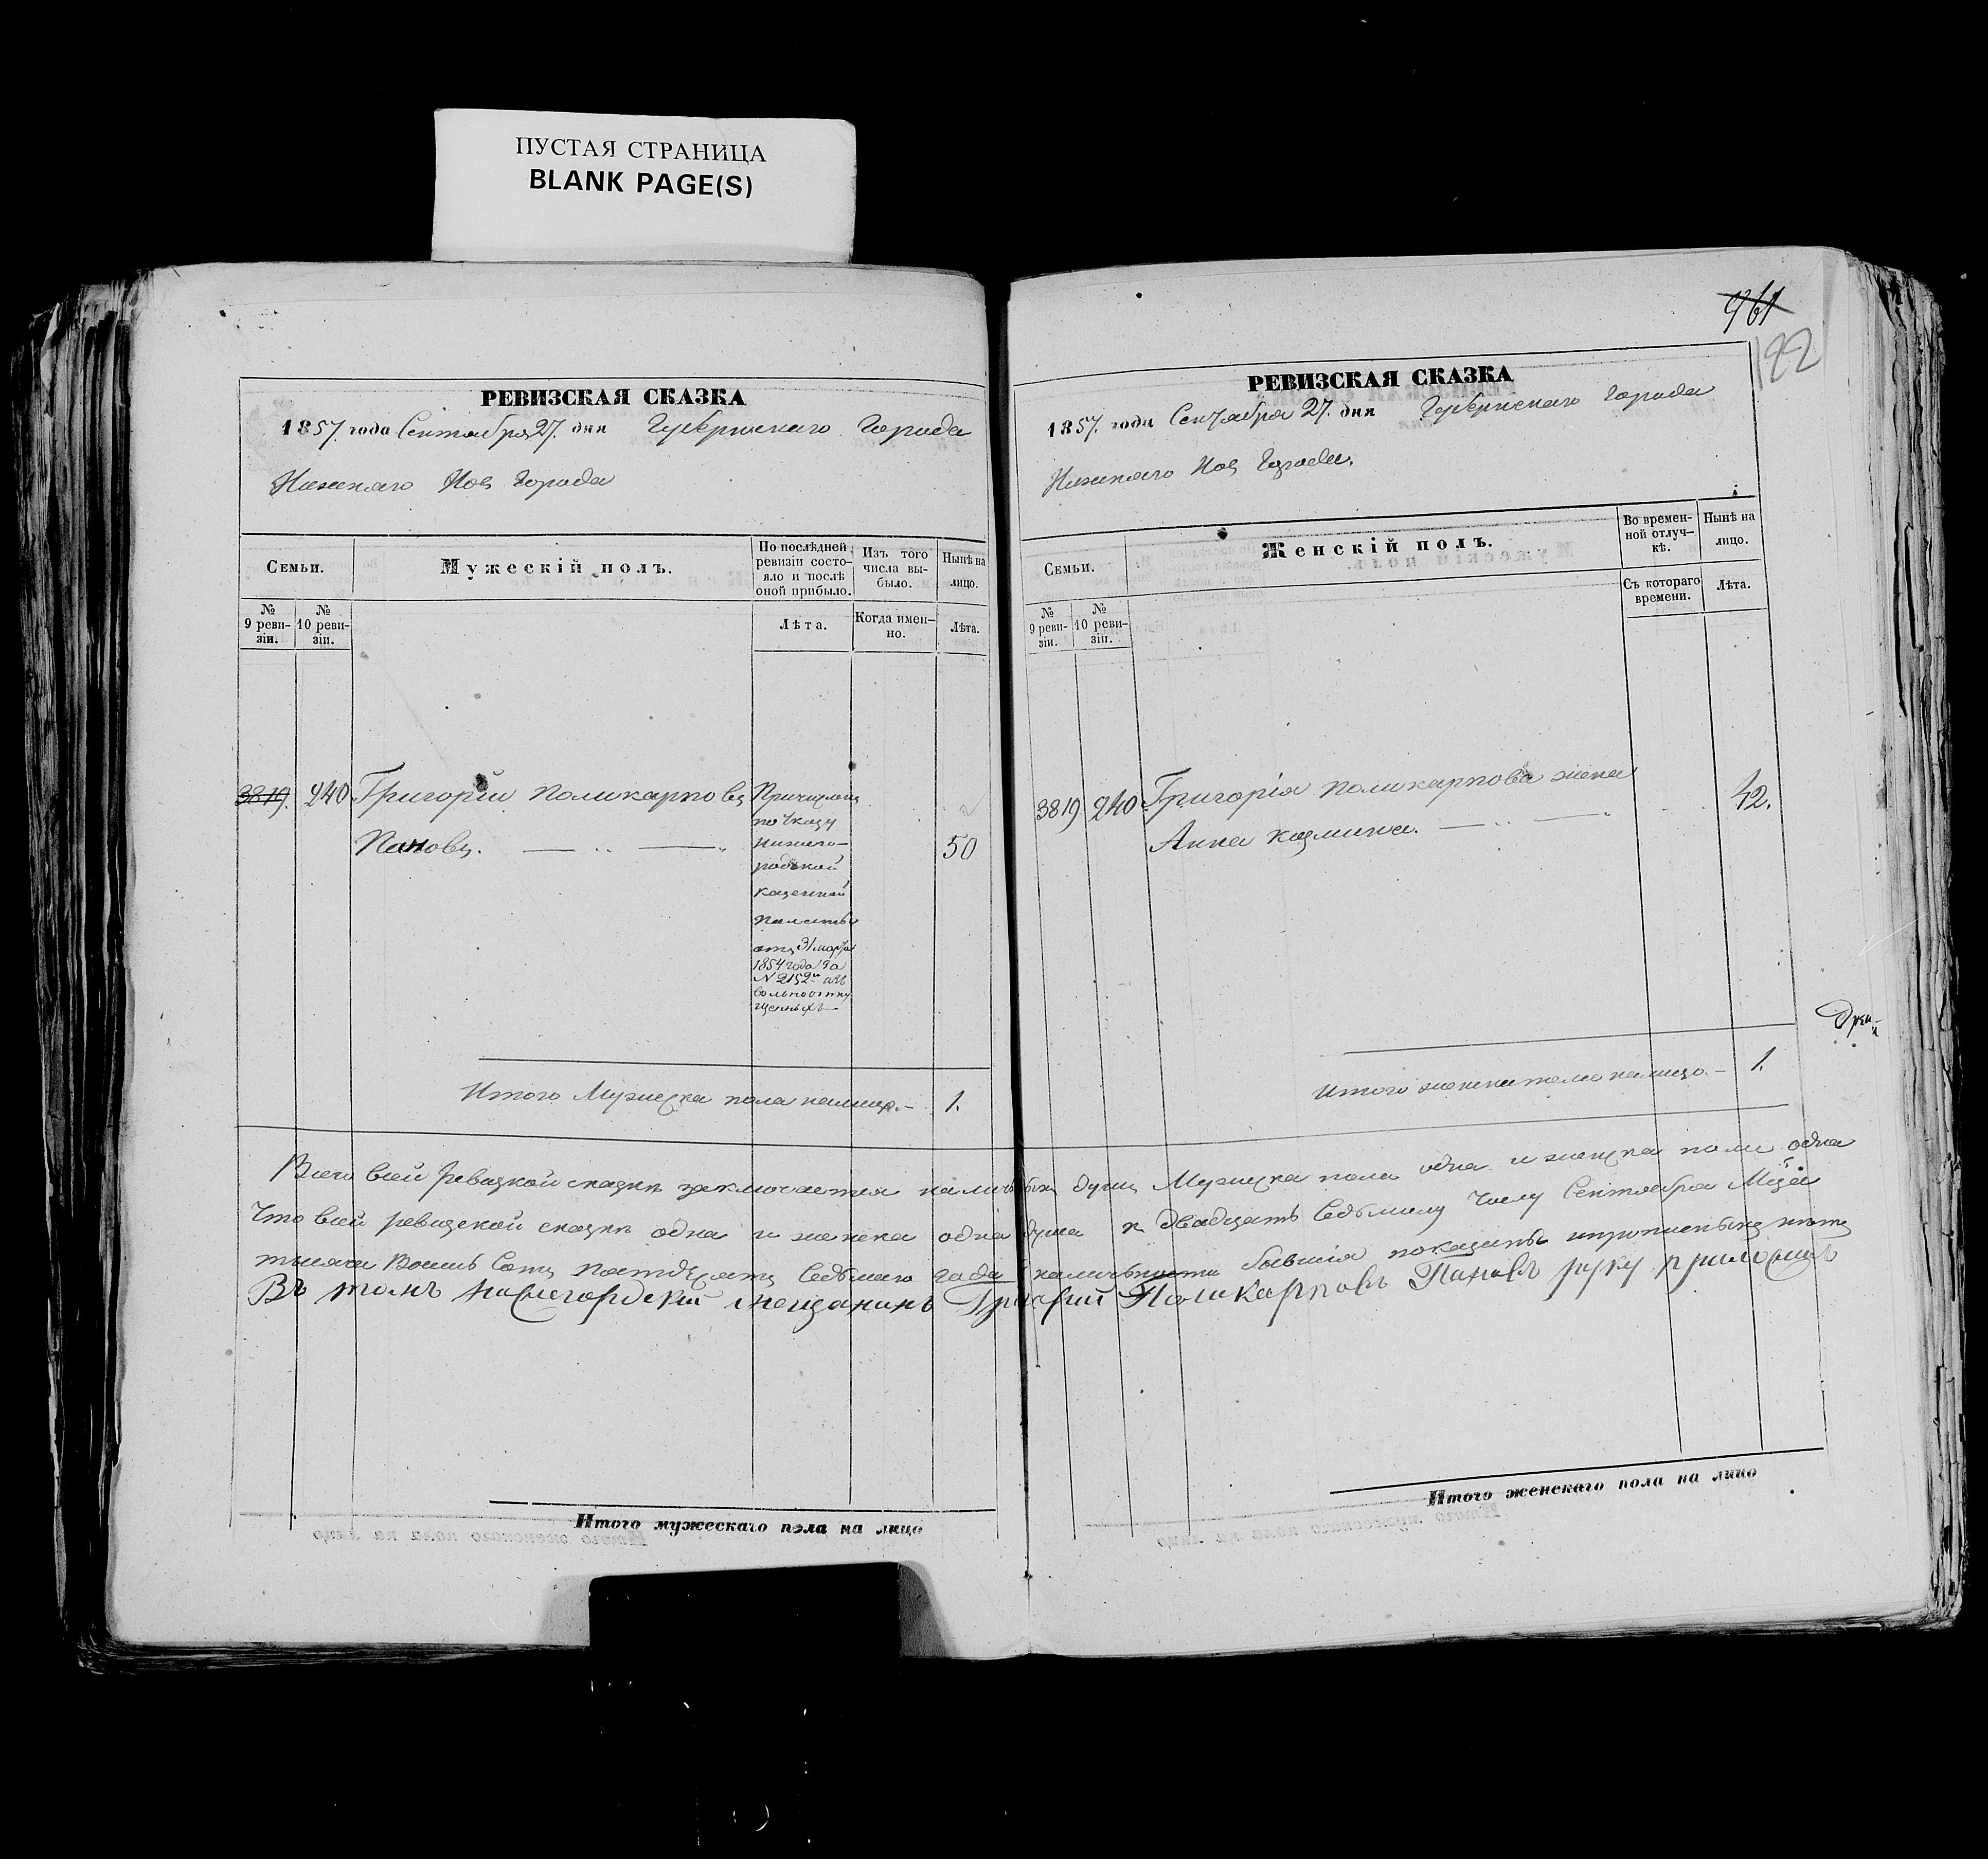 ПУСТАЯ СТРАНИЦА
BLANK PAGE(S)
РЕВИЗСКАЯ СКАЗКА
1857. года Сентября 27. дня Губернскаго Города
Нижняго Нов Города
Семьи.
Мужескій полъ.
По послѣдней ревизіи состо-
яло и послѣ
оной прибыло.
Изъ того
числа вы-
было.
Нынѣ на
лицо.
№
9 реви-
зіи.
№
10 реви-
зіи.
Лѣта.
Когда имен-
но.
Лѣта.
3819. 240 Григорій Поликарповъ
Пановъ.
Причисленъ
по Указу
Нижего-
родской
казенной
Палаты
отъ 31 марта
1854 года за
№ 2152 изъ
вольноотпу
щенныхъ
50
Итого Мужеска пола налицо.- 1.
961
192
РЕВИЗСКАЯ СКАЗКА
1857. года Сентября 27. дня Губернскаго Города
Нижняго Нов Города.
Семьи.
Женскій полъ.
Во времен-
ной отлуч-
кѣ.
Нынѣ на
лицо.
№
9 реви-
зіи.
№
10 реви-
зіи.
Съ котораго
времени.
Лѣта.
3819 240 Григорія Поликарпова жена
Анна Козмина.
42.
Итого женска пола налицо.- 1.
Всего въ сей ревизкой сказкѣ заключается наличныхъ душъ Мужеска пола одна и женска пола одна
Что въ сей ревизской сказкѣ одна и женска одна душа къ двадцать седьмому числу Сентября
тысяча восемь сотъ пятдесятъ седьмаго года бывшія показаны
Въ томъ нижегородскій мещанинъ Григорий Поликарповъ Пановъ руку приложилъ
Итого мужескаго пола на лицо
Итого женскаго пола на лицо